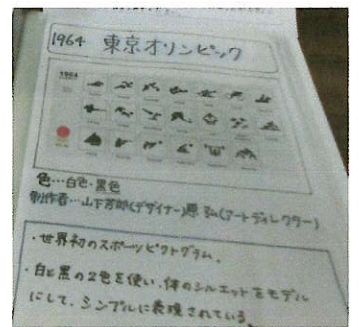 1964 東京オリンピック
1964
色…白色・黒色
制作者…山下芳郎(デザイナー)原 弘(アートディレクター)
・世界初のスポーツピクトグラム。
・白と黒の2色を使い、体のシルエットをモデル
にして、シンプルに表現されている。